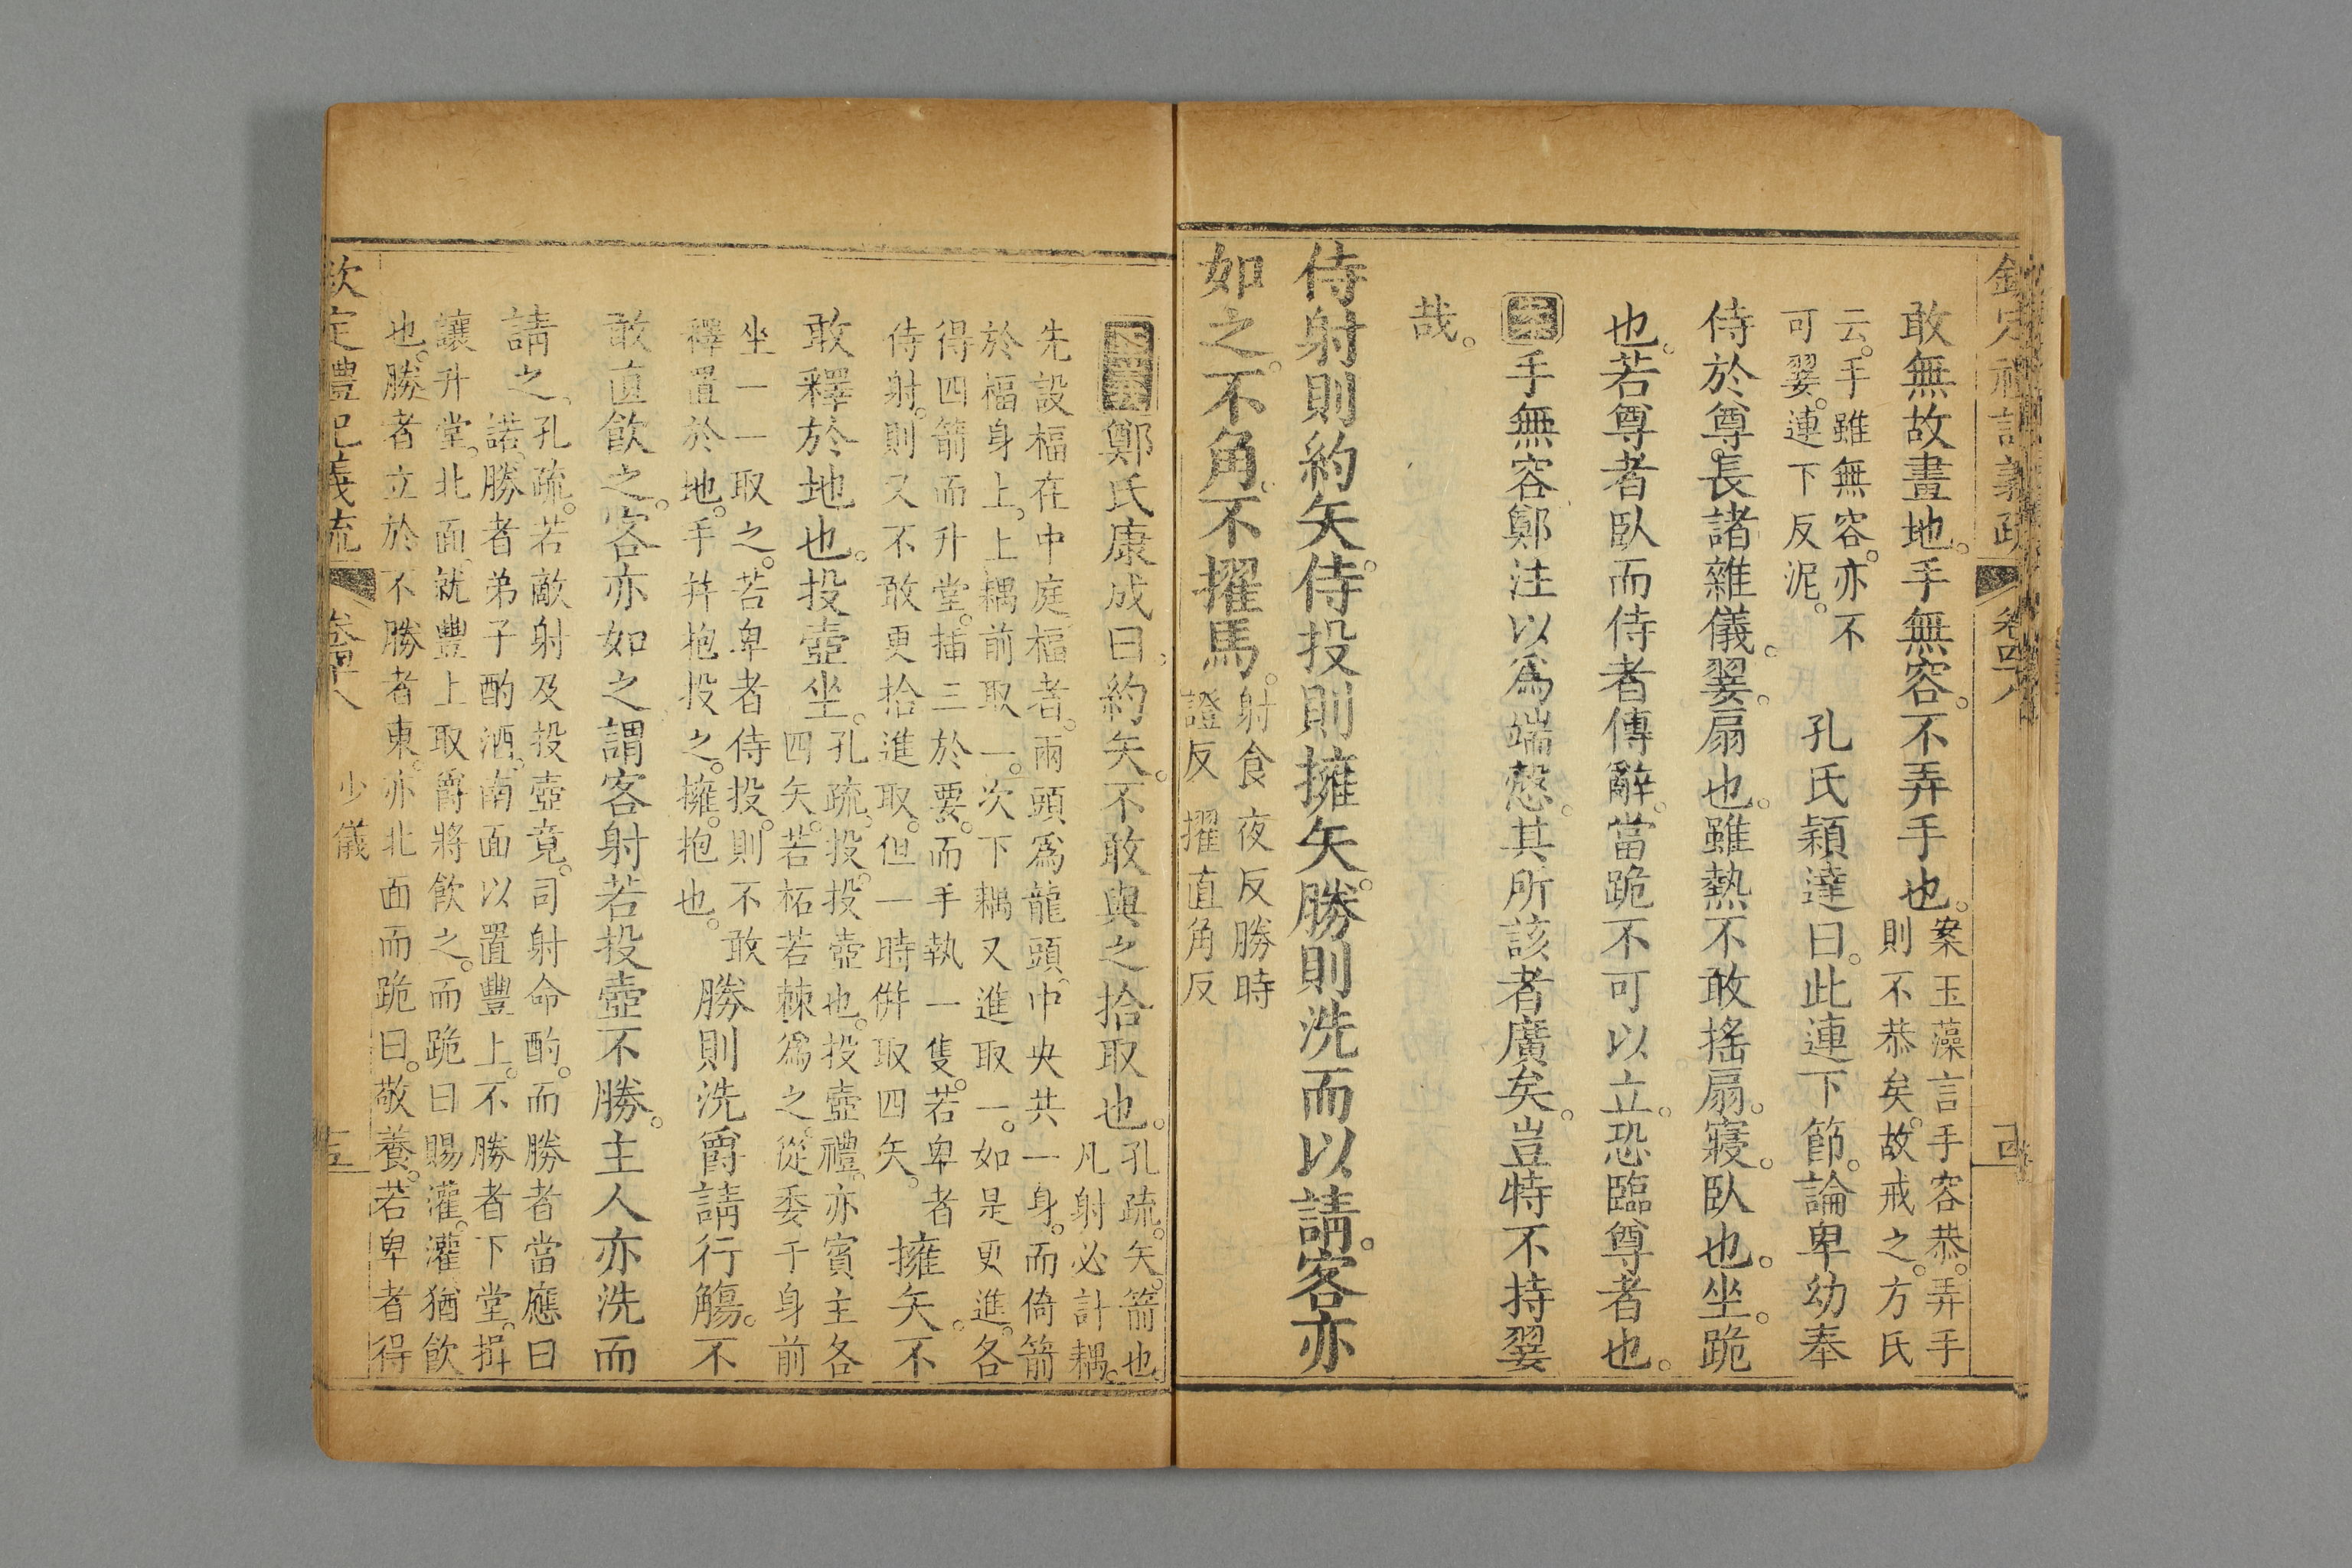 敢無故畫地。手無容。不弄手也。案玉藻言手容恭。弄手
則不恭矣。故戒之。方氏
云。手雖無容。亦不
可翣。連下反泥。
孔氏穎達曰。此連下節。論卑幼奉
侍於尊長諸雜儀。翣。扇也。雖熱不敢搖扇。寢。臥也。坐。跪
也。若尊者臥而侍者傳辭。當跪不可以立。恐臨尊者也。
手無容鄭注以為端慤。其所該者廣矣。豈特不持翣
哉。
侍射則約矢。侍投則擁矢。勝則洗而以請。客亦
如之。不角。不擢馬。射食夜反勝時
證反擢直角反
鄭氏康成曰。約矢。不敢與之拾取也。孔疏。矢。箭也。
凡射必計耦。
先設楅在中庭。楅者。兩頭為龍頭。中央共一身。而倚箭
於楅身上。上耦前取一。次下耦又進取一。如是更進。各
得四箭而升堂。插三於要。而手執一隻。若卑者
侍射。則又不敢更拾進取。但一時併取四矢。
擁矢。不
敢釋於地也。投壺坐。孔疏。投。投壺也。投壺禮。亦賓主各
四矢。若柘若棘為之。從委于身前
坐一一取之。若卑者侍投。則不敢
釋置於地。手并抱投之。擁。抱也。
勝則洗爵請行觴。不
敢直飲之。客亦如之謂客射若投壺不勝。主人亦洗而
請之。孔疏。若敵射及投壺竟。司射命酌。而勝者當應曰
諾。勝者弟子酌酒。南面以置豐上。不勝者下堂。揖
讓升堂。北面。就豐上取爵將飲之。而跪曰賜灌。灌猶飲
也。勝者立於不勝者東。亦北面而跪曰。敬養。若卑者得
欽定禮記義疏 卷四十八 少儀